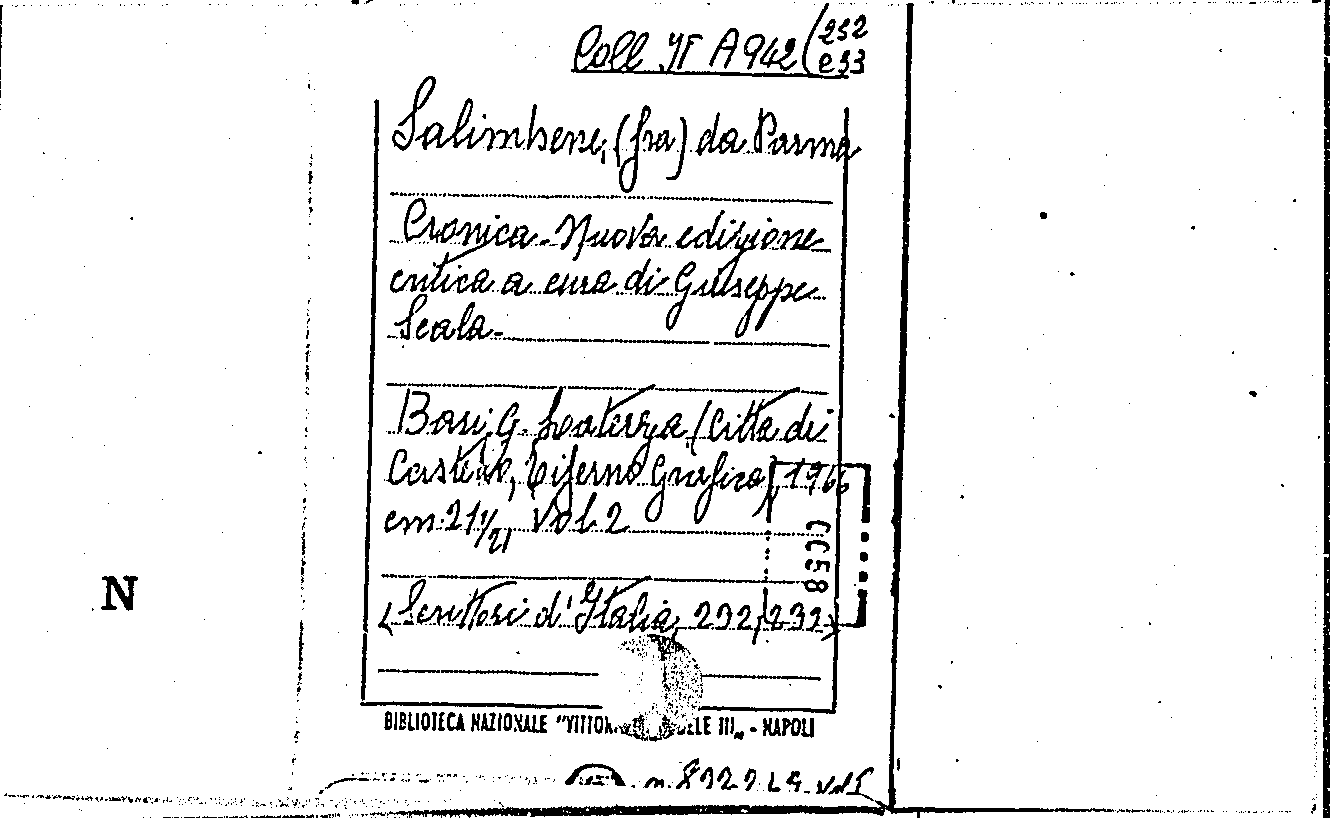 Coll. IT A 942 (232
e 33
Salimbene, (fra) da Parma
Cronica - Nuova edizione
critica a cura di Giuseppe
Scala -
Bari, G. Laterza (Città di
Castello, Tiferno Grafica), 1966
cm 21 1/21 Vol. 2
(Scrittori d'Italia, 232, 233)
CC58
N
BIBLIOTECA NAZIONALE "VITTOR ELE III" - NAPOLI
n. 832